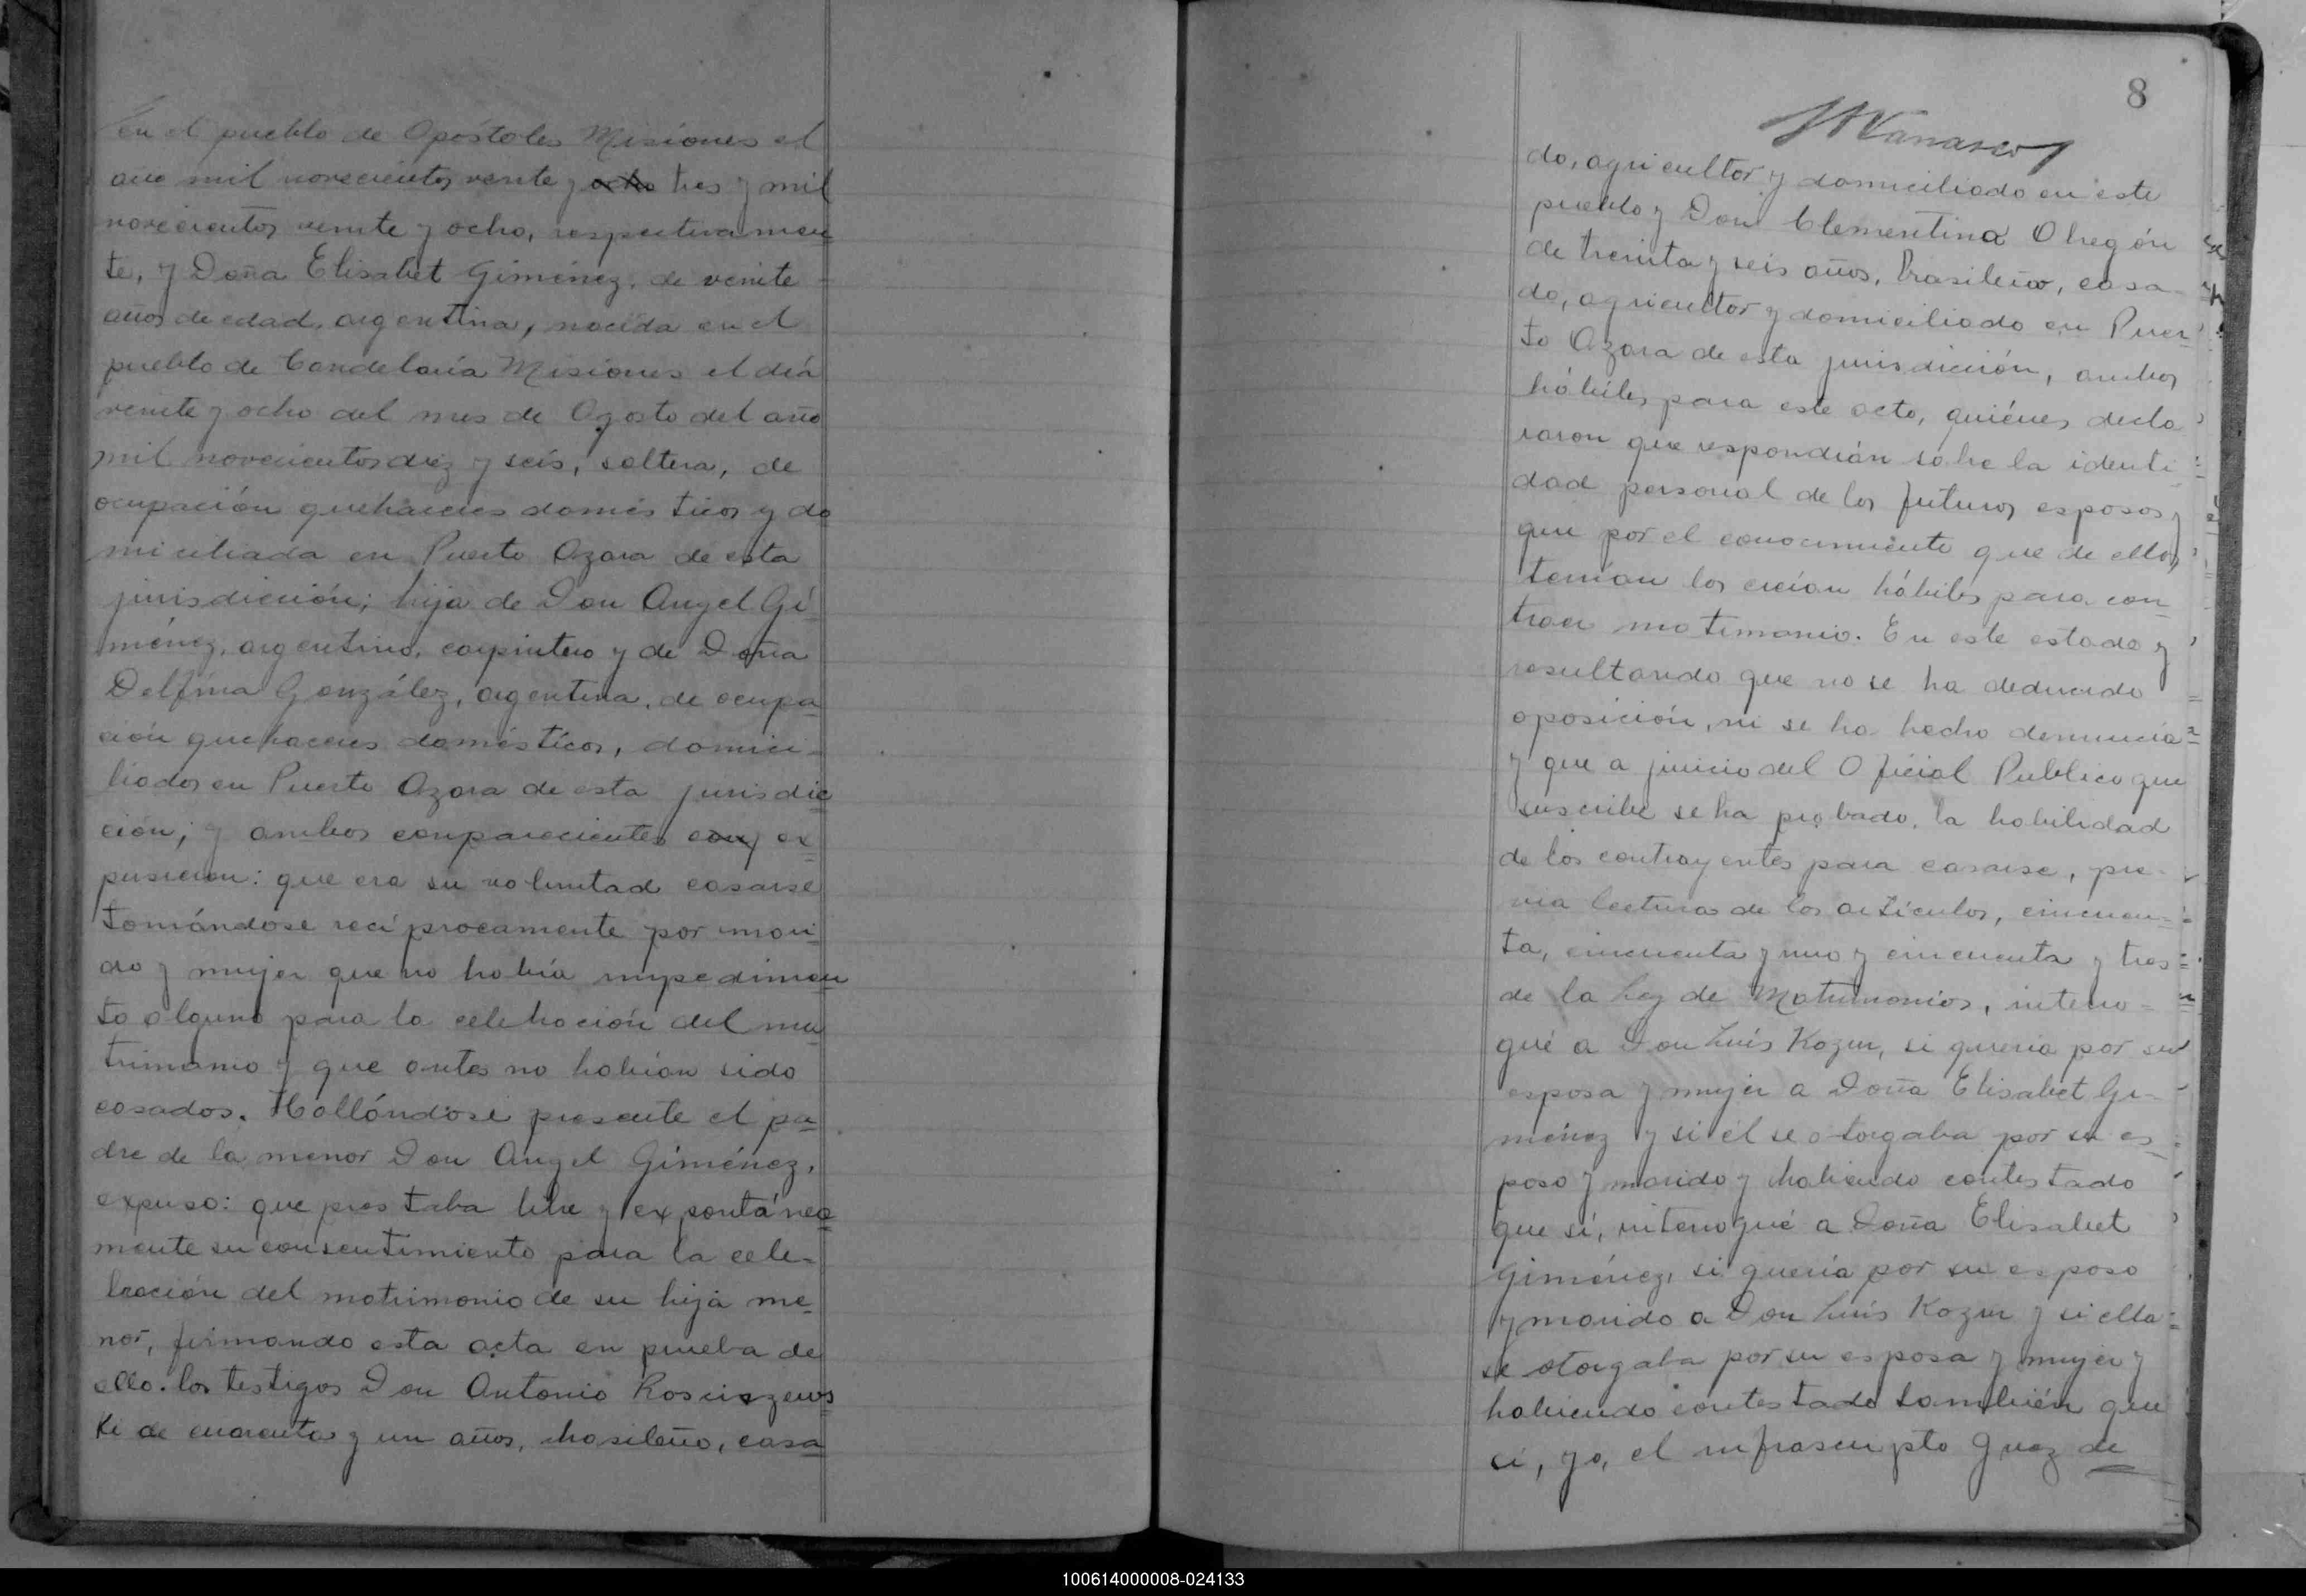 en el pueblo de Apóstoles Misiones el
año mil novecientos veinte y ocho tres y mil
novecientos veinte y ocho, respectivamen
te, y Doña Elisabet Giménez, de veinte
años de edad, argentina, nacida en el
pueblo de Candelaria Misiones el diá
veinte y ocho del mes de Agosto del año
mil novecientos diez y seis, soltera, de
ocupación quehaceres domésticos y do
miciliada en Puerto Azara de esta
jurisdicción; hija de Don Angel Gi
ménez, argentino, carpintero y de Doña
Delfina González, argentina, de ocupa
ción quehaceres domésticos, domici-
liados en Puerto Azara de esta jurisdic
ción; y ambos comparecientes ex
pusieron: que era su voluntad casarse
tomándose recíprocamente por mari
do y mujer que no había impedimen
to alguno para la celebración del ma
trimonio y que antes no habían sido
casados. Hallándose presente el pa
dre de la menor Don Angel Giménez,
expuso: que prestaba libre y expontánea
mente su consentimiento para la cele-
bración del matrimonio de su hija me
nor, firmando esta acta en prueba de
ello. los testigos Don Antonio Rosciszews
ki de cuarenta y un años, brasileño, casa
8
do, agricultor y domiciliado en este
pueblo y Don Clementina Obregón
de treinta y seis años, brasilero, casa-
do, agricultor y domiciliado en Puer
to Azara de esta jurisdicción, ambos
hábiles para este acto, quiénes decla
raron que respondián sobre la identi
dad personal de los futuros esposos y
que por el conocimiento que de ellos
tenían los creían hábiles para con
traer matimonio. En este estado y
resultando que no se ha deducido
oposición, ni se ha hecho denuncia
y que a juicio del Oficial Publico que
suscribe se ha probado, la habilidad
de los contrayentes para casarse, pre-
via lectura de los artículos, cincuen-
ta, cincuenta y uno y cincuenta y tres
de la Ley de Matrimonios, interro-
gué a Don Luis Kozur, si queria por su
esposa y mujer a Doña Elisabet Gi-
ménez y si él se otorgaba por su es
poso y marido y habiendo contestado
que sí, interrogué a Doña Elisabet
Giménez, si quería por su esposo
y marido a Don Luis Kozur y si ella
se otorgaba por su esposa y mujer y
habiendo contestado también que
sí, yo, el infrascripto Juez de
100614000008-024133